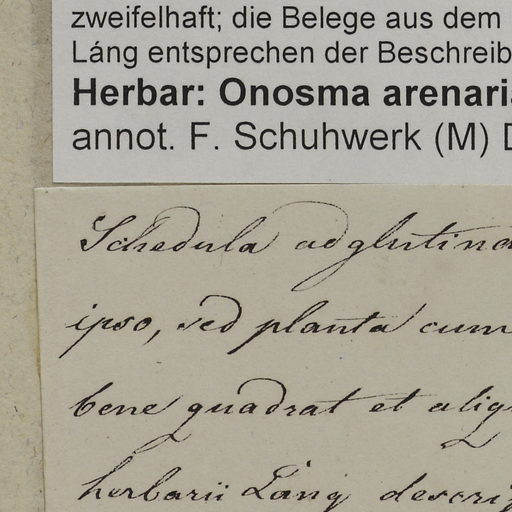 zweifelhaft; die Belege aus dem
Láng entsprechen der Beschreib
Herbar: Onosma arenaria
annot. F. Schuhwerk (M) D
Schedula adglutina
ipso, sed planta cum
bene quadrat et aliq
herbarii Láng descrip